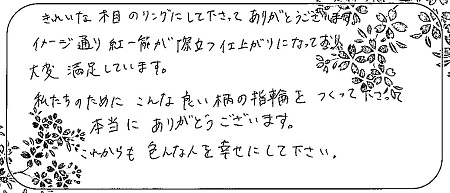 きれいな木目のリングにして下さってありがとうございます。
イメージ通り紅一筋が際立つ仕上がりになっており
大変満足しています。
私たちのためにこんな良い柄の指輪をつくって下さって
本当にありがとうございます。
これからも色んな人を幸せにして下さい。